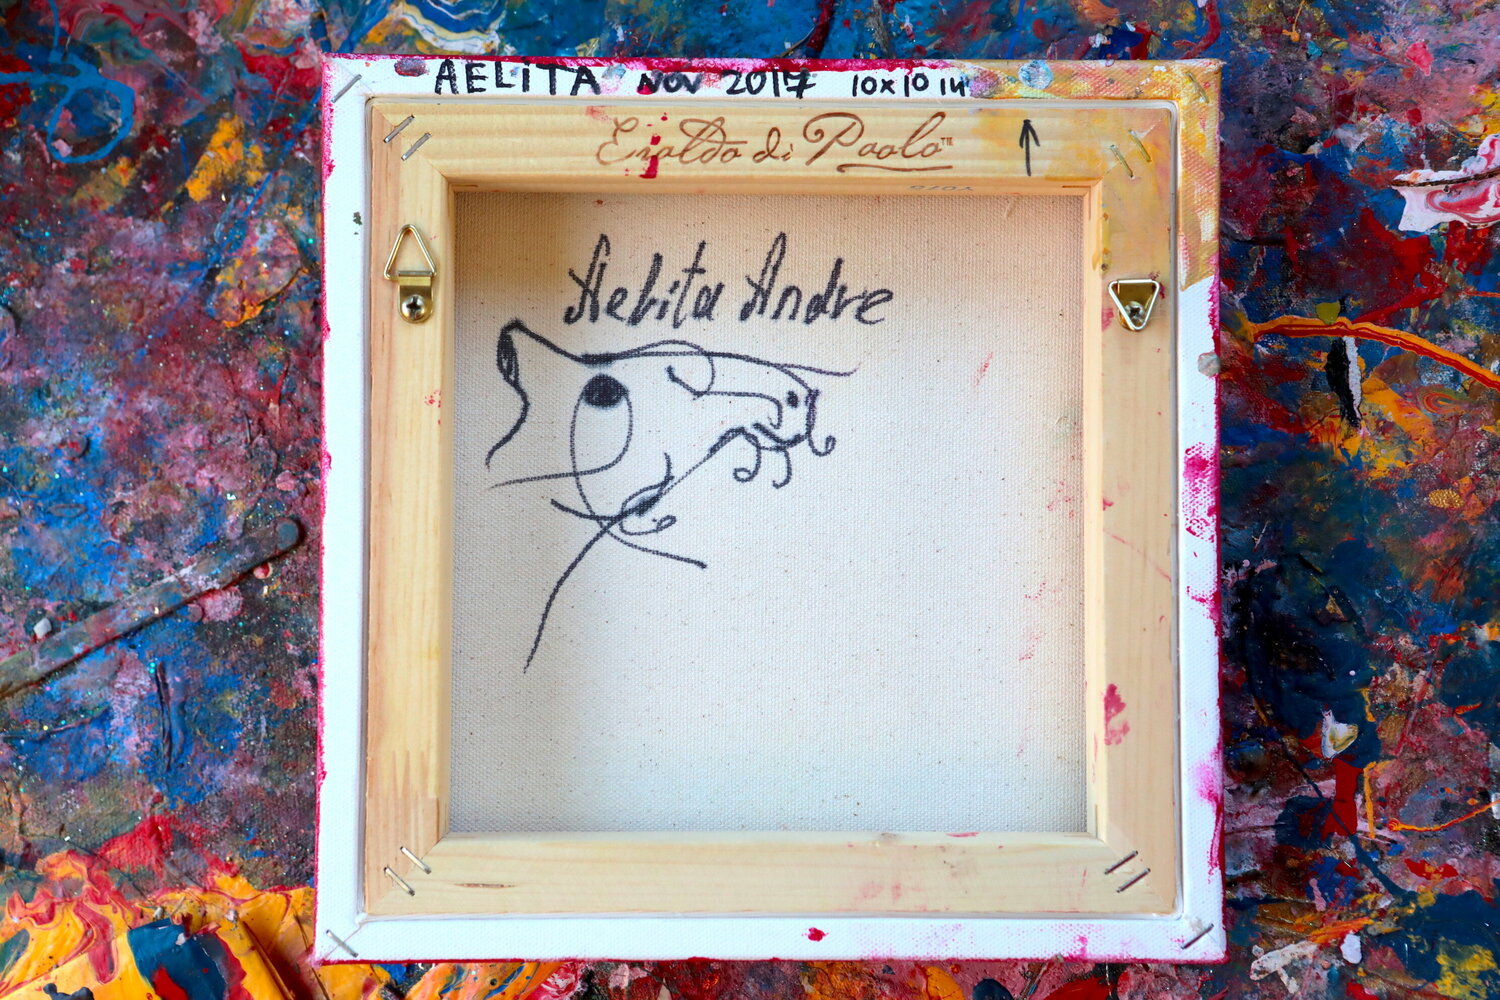 AELiTA NOV 2017 10x10 in
Eraldo di Paolo™
Aelita Andre